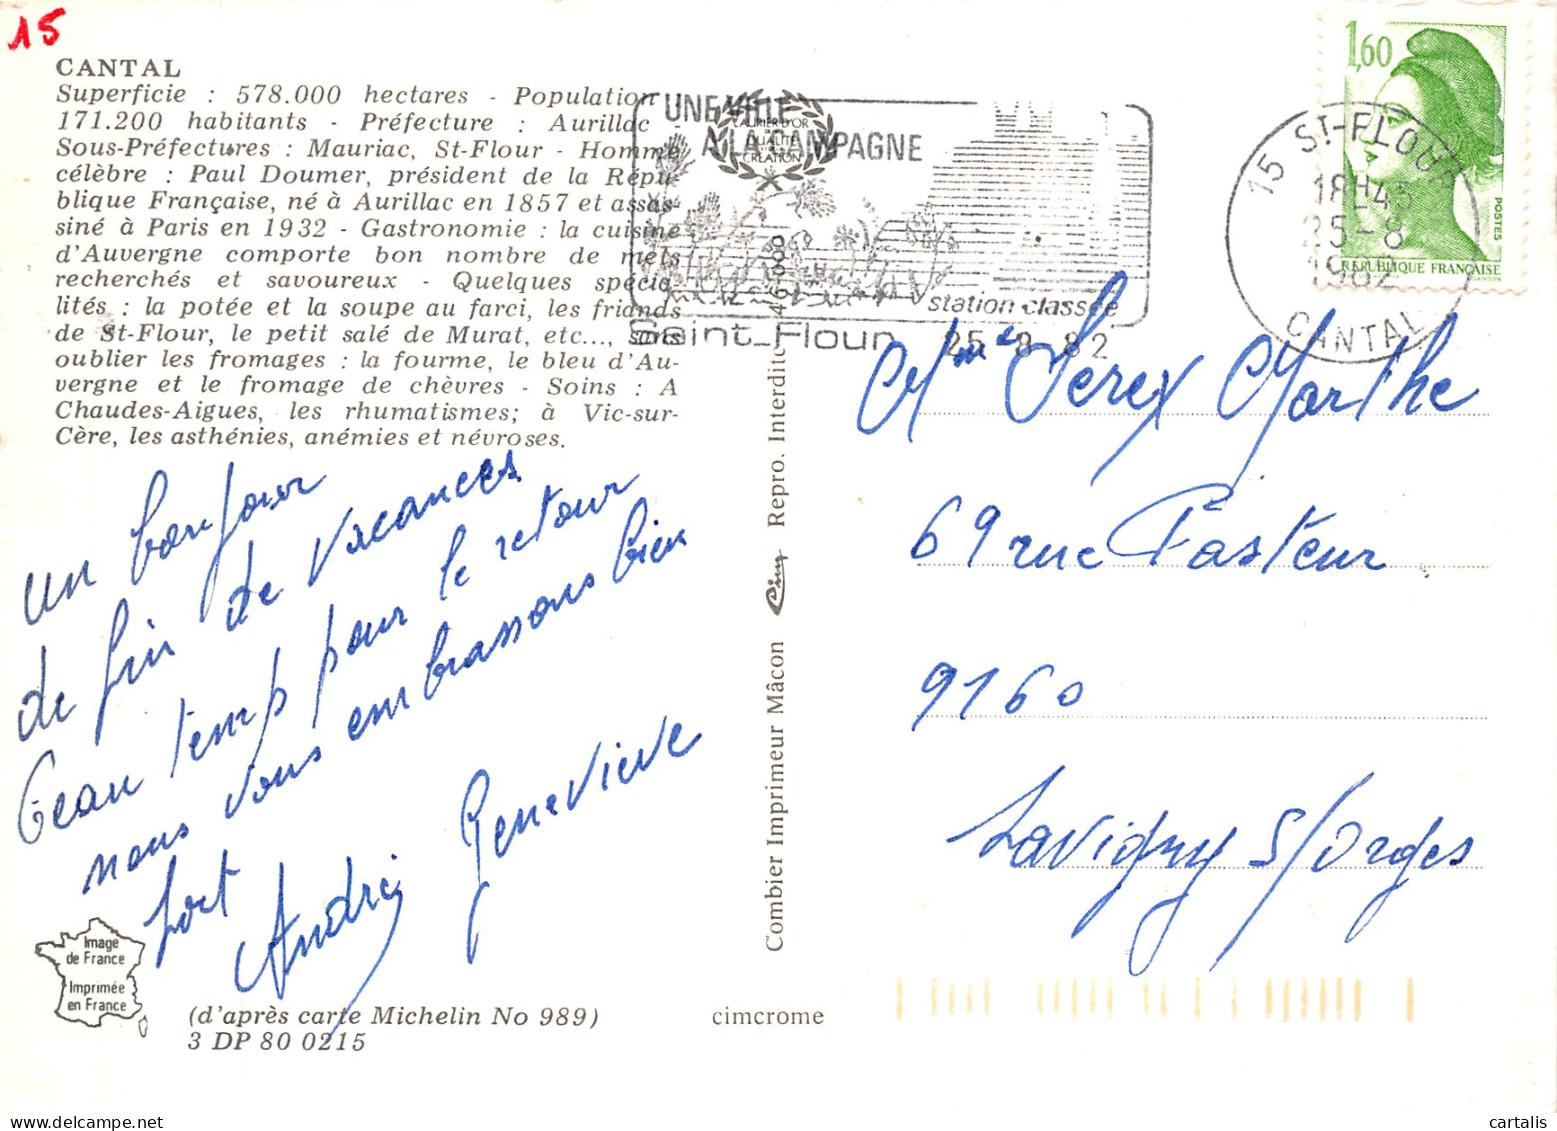 15
CANTAL
Superficie : 578.000 hectares - Population :
171.200 habitants - Préfecture : Aurillac -
Sous-Préfectures : Mauriac, St-Flour - Homme
célèbre : Paul Doumer, président de la Répu-
blique Française, né à Aurillac en 1857 et assas-
siné à Paris en 1932 - Gastronomie : la cuisine
d'Auvergne comporte bon nombre de mets
recherchés et savoureux - Quelques spécia-
lités : la potée et la soupe au farci, les friands
de St-Flour, le petit salé de Murat, etc..., sans
oublier les fromages : la fourme, le bleu d'Au-
vergne et le fromage de chèvres - Soins : A
Chaudes-Aigues, les rhumatismes; à Vic-sur-
Cère, les asthénies, anémies et névroses.
un bonjour
de fin de vacances
Beau temp pour le retour
nous vous embrassons bien
fort
André Geneviève
Image
de France
Imprimée
en France
(d'après carte Michelin No 989)
3 DP 80 0215
cimcrome
Combier Imprimeur Mâcon Cim Repro. Interdite
UNE VILLE
A LA CAMPAGNE
LAURIER D'OR
DE
QUALITÉ
CRÉATION
station classée
Saint-Flour 25 8 82
15 ST-FLOUR
18H45
25-8
1982
CANTAL
1,60
POSTES
RÉPUBLIQUE FRANÇAISE
Mme Serex Marthe
69 rue Pasteur
9160
Lavigny S/Orges
cartalis